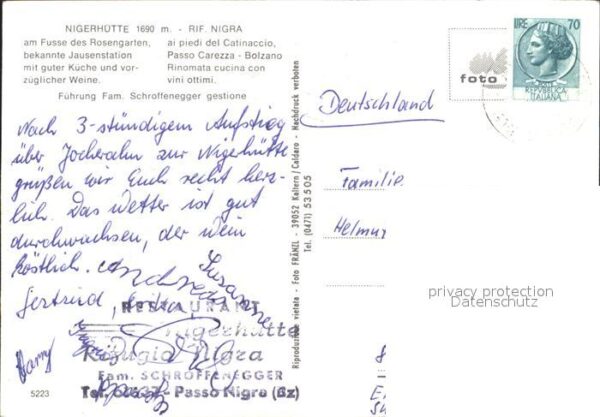 NIGERHÜTTE 1690 m. - RIF. NIGRA
am Fusse des Rosengarten,
bekannte Jausenstation
mit guter Küche und vor-
züglicher Weine.
ai piedi del Catinaccio,
Passo Carezza - Bolzano
Rinomata cucina con
vini ottimi.
Führung Fam. Schroffenegger gestione
Nach 3-stündigem Aufstieg
über Jocheralm zur Nigerhütte
grüßen wir Euch recht herz-
lich. Das Wetter ist gut
durchwachsen, der Wein
köstlich.
Andreas
Susanne
Gertrud,
Harry
RESTAURANT
Nigerhütte
Rifugio Nigra
Fam. SCHROFFENEGGER
Tel. - Passo Nigra (Bz)
5223
Riproduzione vietata - Foto FRÄNZL - 39052 Kaltern/Caldaro - Nachdruck verboten
Tel. (0471) 53505
foto
LIRE 70
REPUBBLICA
ITALIANA
Deutschland
Familie
Helmut
privacy protection
Datenschutz